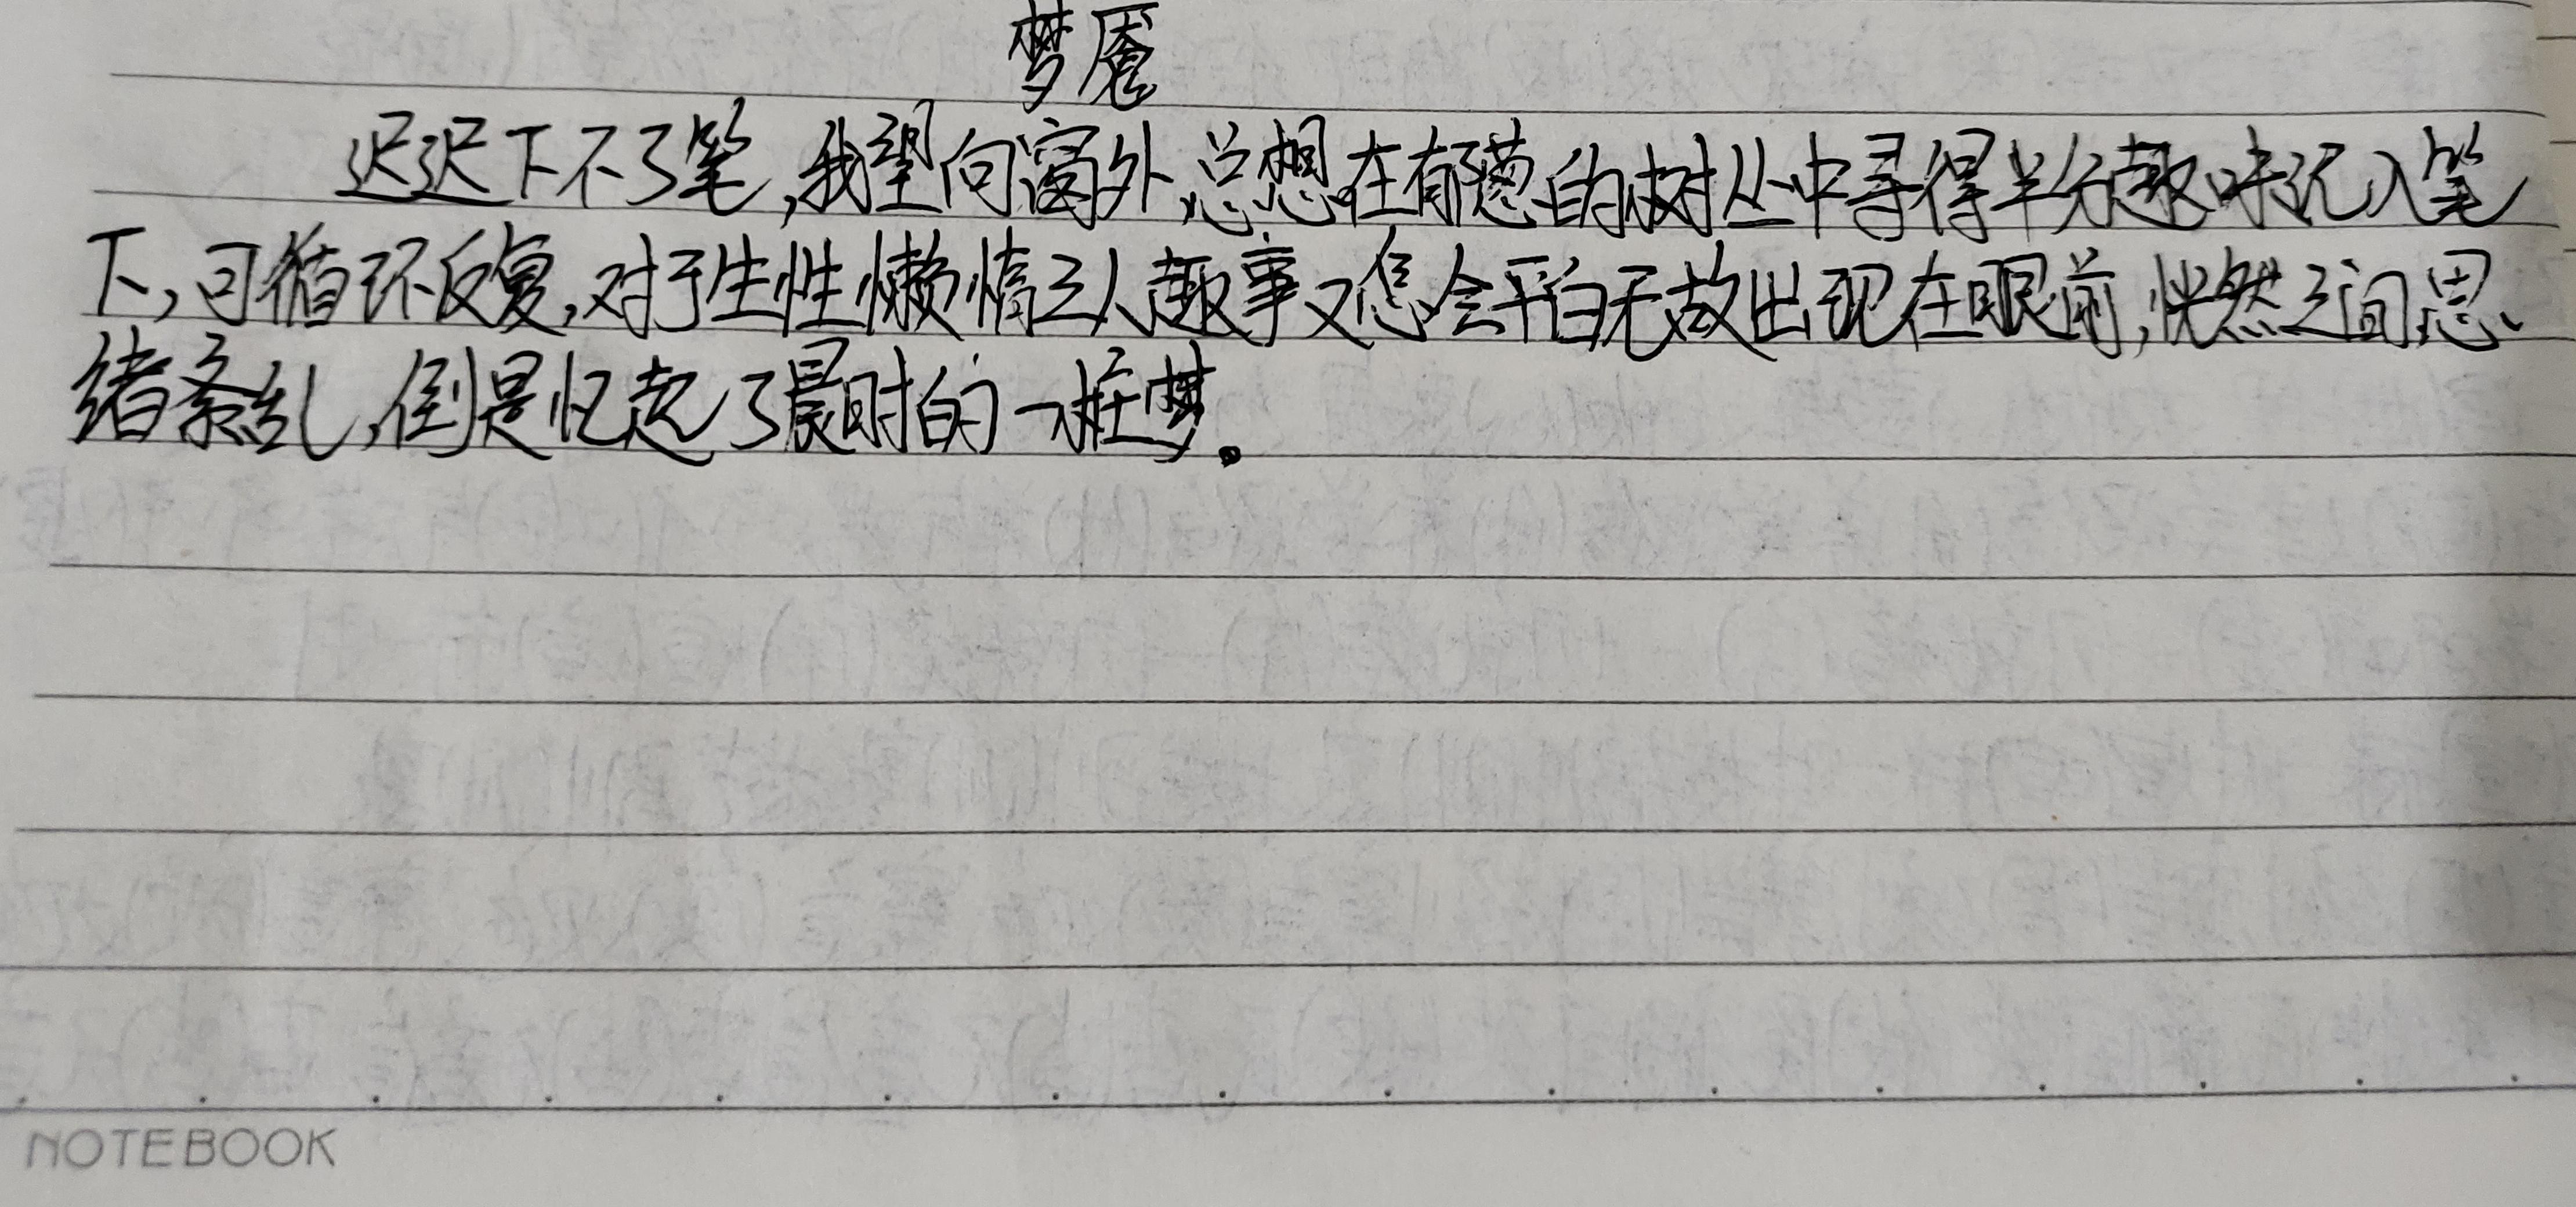 梦魇
迟迟下不了笔,我望向窗外,总想在郁葱的树丛中寻得半分趣味记入笔
下,可循环反复,对于生性懒惰之人趣事又怎会平白无故出现在眼前,恍然之间思
绪紊乱,倒是忆起了晨时的一桩梦。
NOTEBOOK